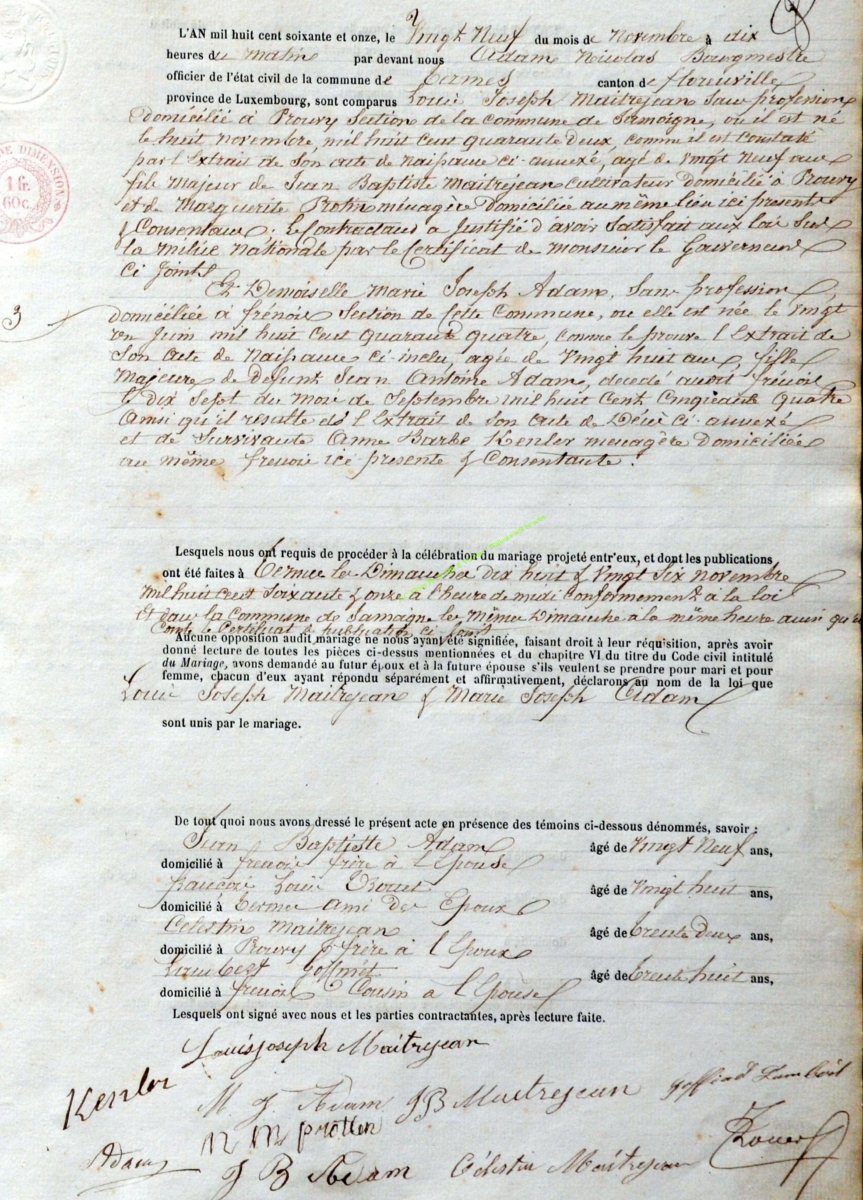 L'AN mil huit cent soixante et onze, le Vingt Neuf du mois de Novembre à dix
heures du Matin par devant nous Adam Nicolas Bourgmestre
officier de l'état civil de la commune de Termes canton de florenville
province de Luxembourg, sont comparus Louis Joseph Maitrejean Sans profession
Domicilié à Prouvy Section de la commune de Jamoigne, où il est né
le huit novembre, mil huit cent quarante deux, comme il est constaté
par l'Extrait de son acte de naissance ci-annexé, agé de vingt Neuf ans
fils Majeur de Jean Baptiste Maitrejean cultivateur domicilié à Prouvy
et de Marguerite ménagère domiciliée au même lieu ici présents
& Consentans. Le Contractant a Justifié d'avoir Satisfait aux lois Sur
la milice Nationale par le Certificat de monsieur le Gouverneur
ci joint
3
Et Demoiselle Marie Joseph Adam, Sans profession
domiciliée à frenois Section de cette Commune, ou elle est née le vingt
en Juin mil huit cent quarante quatre, comme le prouve l'Extrait de
Son acte de Naissance ci-inclu, agée de vingt huit ans, fille
Majeure de Défunt Jean Antoine Adam, décédé audit frenois
le dix Sept du mois de Septembre mil huit Cent Cinquante Quatre
Ainsi qu'il résulte de l'Extrait de son acte de Décès ci-annexé
et de Survivante Anne Barbe Kenler menagère domiciliée
au même frenois ici présente & Consentante.
Lesquels nous ont requis de procéder à la célébration du mariage projeté entr'eux, et dont les publications
ont été faites à Termes les Dimanches dix huit & Vingt Six novembre
mil huit cent Soixante & onze à l'heure de midi Conformément à la loi
Et dans la Commune de Jamogne les même Dimanche à la même heure ainsi qu'il
Conste le Certificat de publication ci joint
Aucune opposition audit mariage ne nous ayant été signifiée, faisant droit à leur réquisition, après avoir
donné lecture de toutes les pièces ci-dessus mentionnées et du chapitre VI du titre du Code civil intitulé
du Mariage, avons demandé au futur époux et à la future épouse s'ils veulent se prendre pour mari et pour
femme, chacun d'eux ayant répondu séparément et affirmativement, déclarons au nom de la loi que
Louis Joseph Maitrejean & Marie Joseph Adam
sont unis par le mariage.
De tout quoi nous avons dressé le présent acte en présence des témoins ci-dessous dénommés, savoir :
Jean Baptiste Adam âgé de Vingt Neuf ans,
domicilié à frenois frère à l'Epouse
francois Louis âgé de Vingt huit ans,
domicilié à Termes Ami des Epoux
Celestin Maitrejean âgé de trente deux ans,
domicilié à Prouvy & frère à l'Epoux
Lambert Goffinet âgé de trente huit ans,
domicilié à frenois Cousin a l'Epouse
Lesquels ont signé avec nous et les parties contractantes, après lecture faite.
Louis joseph Maitrejean
Kenler
M J Adam JB Maitrejean
Adam
J B Adam Célestin Maitrejean